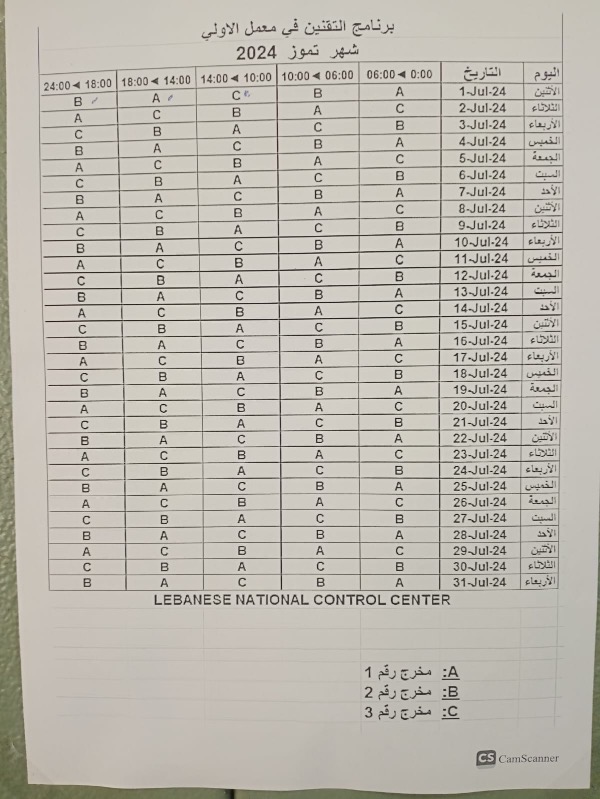 برنامج التقنين في معمل الاولي
شهر تموز 2024
اليوم التاريخ 06:00◄0:00 10:00◄06:00 14:00◄10:00 18:00◄14:00 24:00◄18:00
الأثنين 1-Jul-24 A B C A B
الثلاثاء 2-Jul-24 C A B C A
الأربعاء 3-Jul-24 B C A B C
الخميس 4-Jul-24 A B C A B
الجمعة 5-Jul-24 C A B C A
السبت 6-Jul-24 B C A B C
الأحد 7-Jul-24 A B C A B
الأثنين 8-Jul-24 C A B C A
الثلاثاء 9-Jul-24 B C A B C
الأربعاء 10-Jul-24 A B C A B
الخميس 11-Jul-24 C A B C A
الجمعة 12-Jul-24 B C A B C
السبت 13-Jul-24 A B C A B
الأحد 14-Jul-24 C A B C A
الأثنين 15-Jul-24 B C A B C
الثلاثاء 16-Jul-24 A B C A B
الأربعاء 17-Jul-24 C A B C A
الخميس 18-Jul-24 B C A B C
الجمعة 19-Jul-24 A B C A B
السبت 20-Jul-24 C A B C A
الأحد 21-Jul-24 B C A B C
الأثنين 22-Jul-24 A B C A B
الثلاثاء 23-Jul-24 C A B C A
الأربعاء 24-Jul-24 B C A B C
الخميس 25-Jul-24 A B C A B
الجمعة 26-Jul-24 C A B C A
السبت 27-Jul-24 B C A B C
الأحد 28-Jul-24 A B C A B
الأثنين 29-Jul-24 C A B C A
الثلاثاء 30-Jul-24 B C A B C
الأربعاء 31-Jul-24 A B C A B
LEBANESE NATIONAL CONTROL CENTER
A: مخرج رقم 1
B: مخرج رقم 2
C: مخرج رقم 3
CS CamScanner